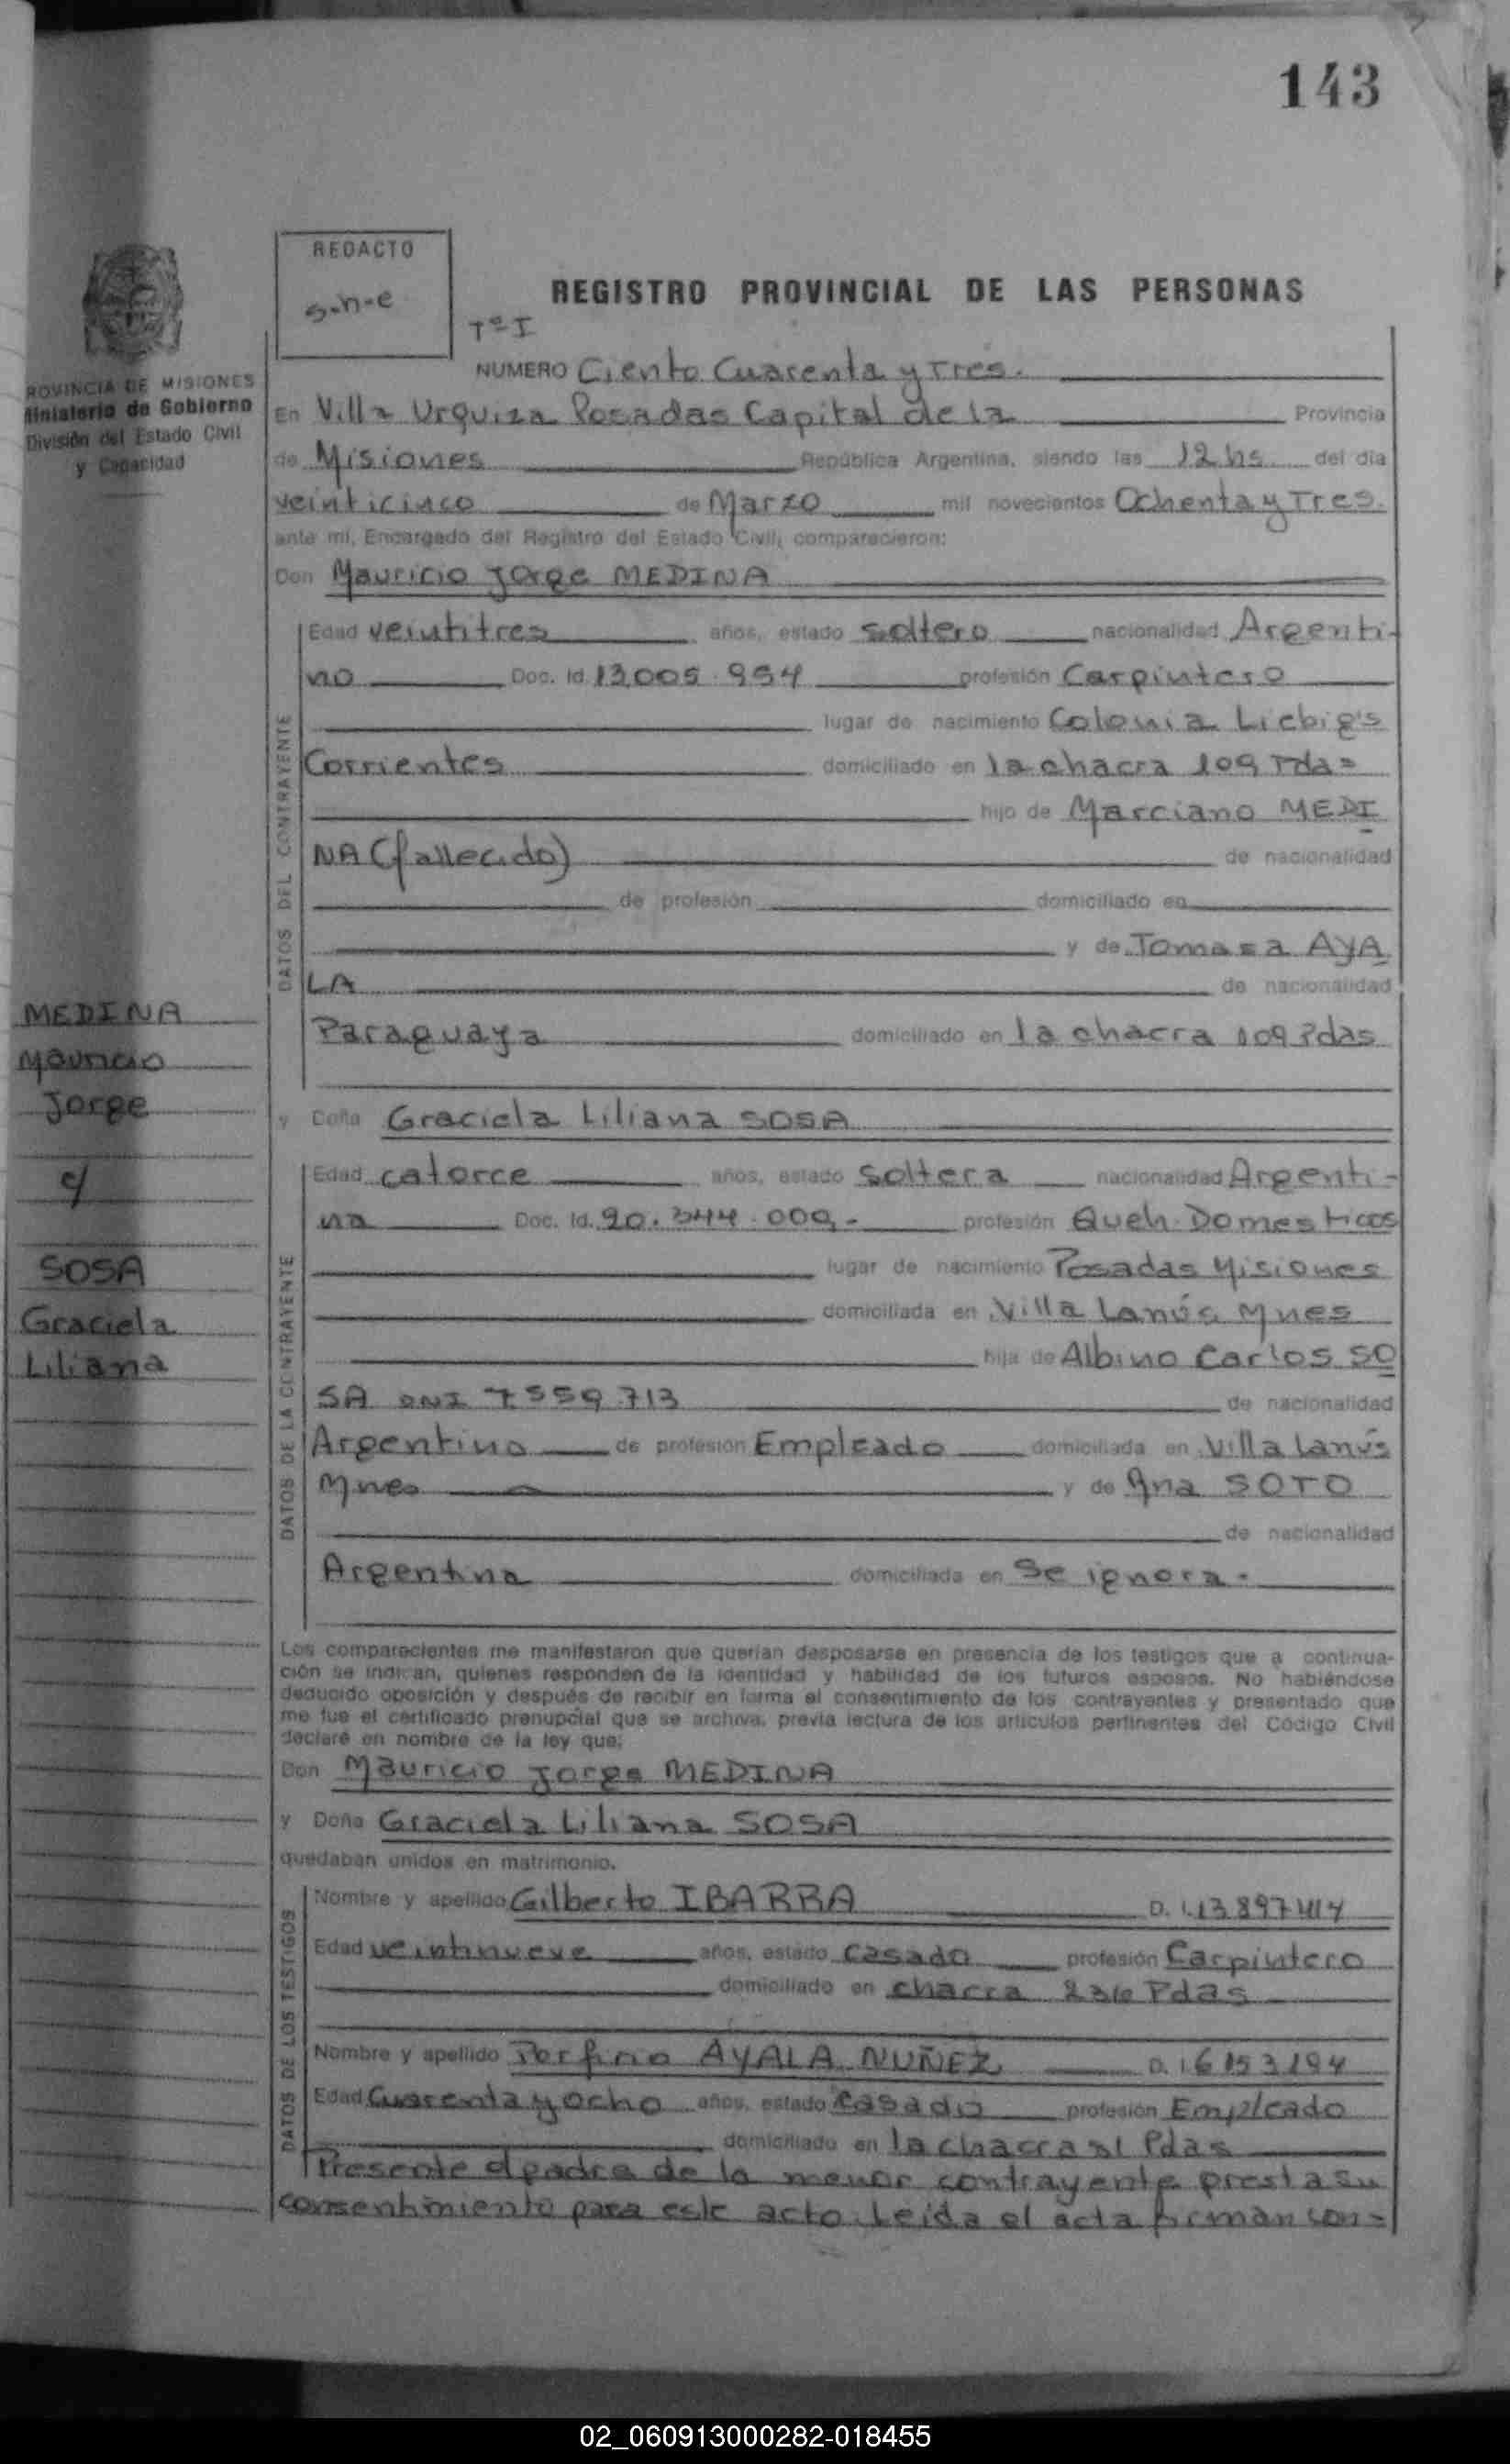 143
REDACTO
s-n-e
REGISTRO PROVINCIAL DE LAS PERSONAS
Tº I
NUMERO Ciento Cuarenta y Tres.
PROVINCIA DE MISIONES
Ministerio de Gobierno
División del Estado Civil
y Capacidad
En Villa Urquiza Posadas Capital de la Provincia
de Misiones República Argentina, siendo las 12 hs del día
veinticinco de Marzo mil novecientos Ochenta y Tres.
ante mi, Encargado del Registro del Estado Civil, comparecieron:
Don Mauricio Jorge MEDINA
DATOS DEL CONTRAYENTE
Edad veintitres años, estado soltero nacionalidad Argenti-
no Doc. Id. 13.005.954 profesión Carpintero
lugar de nacimiento Colonia Liebig's
Corrientes domiciliado en la chacra 109 Pdas
hijo de Marciano MEDI
NA (fallecido) de nacionalidad
de profesión domiciliado en
y de Tomasa AYA
LA de nacionalidad
Paraguaya domiciliado en la chacra 109 Pdas
MEDINA
Mauricio
Jorge
c/
SOSA
Graciela
Liliana
y Doña Graciela Liliana SOSA
DATOS DE LA CONTRAYENTE
Edad catorce años, estado soltera nacionalidad Argenti-
na Doc. Id. 20.344.009.- profesión Queh. Domesticos
lugar de nacimiento Posadas Misiones
domiciliada en Villa Lanús Mnes
hija de Albino Carlos SO
SA DNI 7.559.713 de nacionalidad
Argentino de profesión Empleado domiciliada en Villa Lanús
Mnes y de Ana SOTO
de nacionalidad
Argentina domiciliada en Se ignora.
Los comparecientes me manifestaron que querían desposarse en presencia de los testigos que a continua-
ción se indican, quienes responden de la identidad y habilidad de los futuros esposos. No habiéndose
deducido oposición y después de recibir en forma el consentimiento de los contrayentes y presentado que
me fue el certificado prenupcial que se archiva, previa lectura de los artículos pertinentes del Código Civil
declaré en nombre de la ley que:
Don Mauricio Jorge MEDINA
y Doña Graciela Liliana SOSA
quedaban unidos en matrimonio.
DATOS DE LOS TESTIGOS
Nombre y apellido Gilberto IBARRA D. I. 13.897.414
Edad veintinueve años, estado casado profesión Carpintero
domiciliado en chacra 236 Pdas
Nombre y apellido Porfirio AYALA NUÑEZ D. I. 6153194
Edad Cuarenta y ocho años, estado casado profesión Empleado
domiciliado en la chacra 51 Pdas
Presente el padre de la menor contrayente presta su
consentimiento para este acto. Leída el acta firman con-
02_060913000282-018455